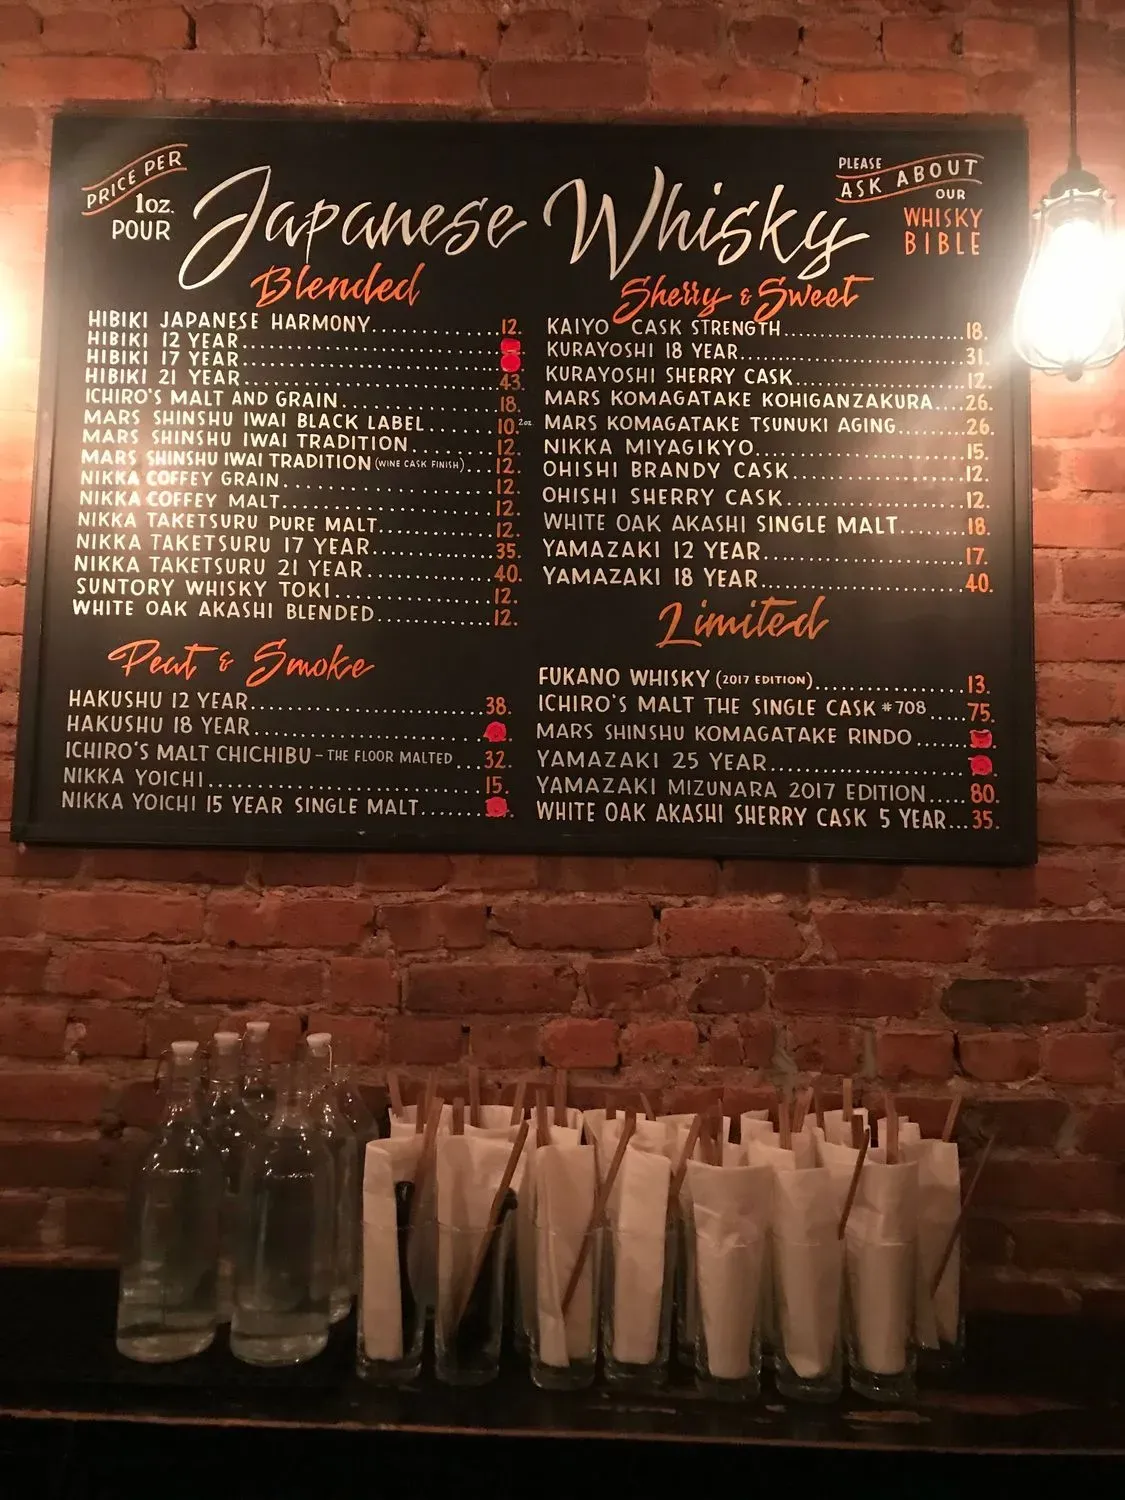 PRICE PER
1oz.
POUR
Japanese Whisky
PLEASE
ASK ABOUT
OUR
WHISKY
BIBLE
Blended
HIBIKI JAPANESE HARMONY..................12.
HIBIKI 12 YEAR
HIBIKI 17 YEAR
HIBIKI 21 YEAR..................43.
ICHIRO'S MALT AND GRAIN..................18.
MARS SHINSHU IWAI BLACK LABEL......10. 2oz.
MARS SHINSHU IWAI TRADITION..........12.
MARS SHINSHU IWAI TRADITION (WINE CASK FINISH)...12.
NIKKA COFFEY GRAIN..................12.
NIKKA COFFEY MALT..................12.
NIKKA TAKETSURU PURE MALT...........12.
NIKKA TAKETSURU 17 YEAR.............35.
NIKKA TAKETSURU 21 YEAR.............40.
SUNTORY WHISKY TOKI................12.
WHITE OAK AKASHI BLENDED............12.
Peat & Smoke
HAKUSHU 12 YEAR..................38.
HAKUSHU 18 YEAR
ICHIRO'S MALT CHICHIBU - THE FLOOR MALTED...32.
NIKKA YOICHI..................15.
NIKKA YOICHI 15 YEAR SINGLE MALT
Sherry & Sweet
KAIYO CASK STRENGTH..................18.
KURAYOSHI 18 YEAR..................31.
KURAYOSHI SHERRY CASK..................12.
MARS KOMAGATAKE KOHIGANZAKURA....26.
MARS KOMAGATAKE TSUNUKI AGING........26.
NIKKA MIYAGIKYO..................15.
OHISHI BRANDY CASK..................12.
OHISHI SHERRY CASK..................12.
WHITE OAK AKASHI SINGLE MALT........18.
YAMAZAKI 12 YEAR..................17.
YAMAZAKI 18 YEAR..................40.
Limited
FUKANO WHISKY (2017 EDITION)..................13.
ICHIRO'S MALT THE SINGLE CASK #708.....75.
MARS SHINSHU KOMAGATAKE RINDO
YAMAZAKI 25 YEAR
YAMAZAKI MIZUNARA 2017 EDITION.....80.
WHITE OAK AKASHI SHERRY CASK 5 YEAR...35.